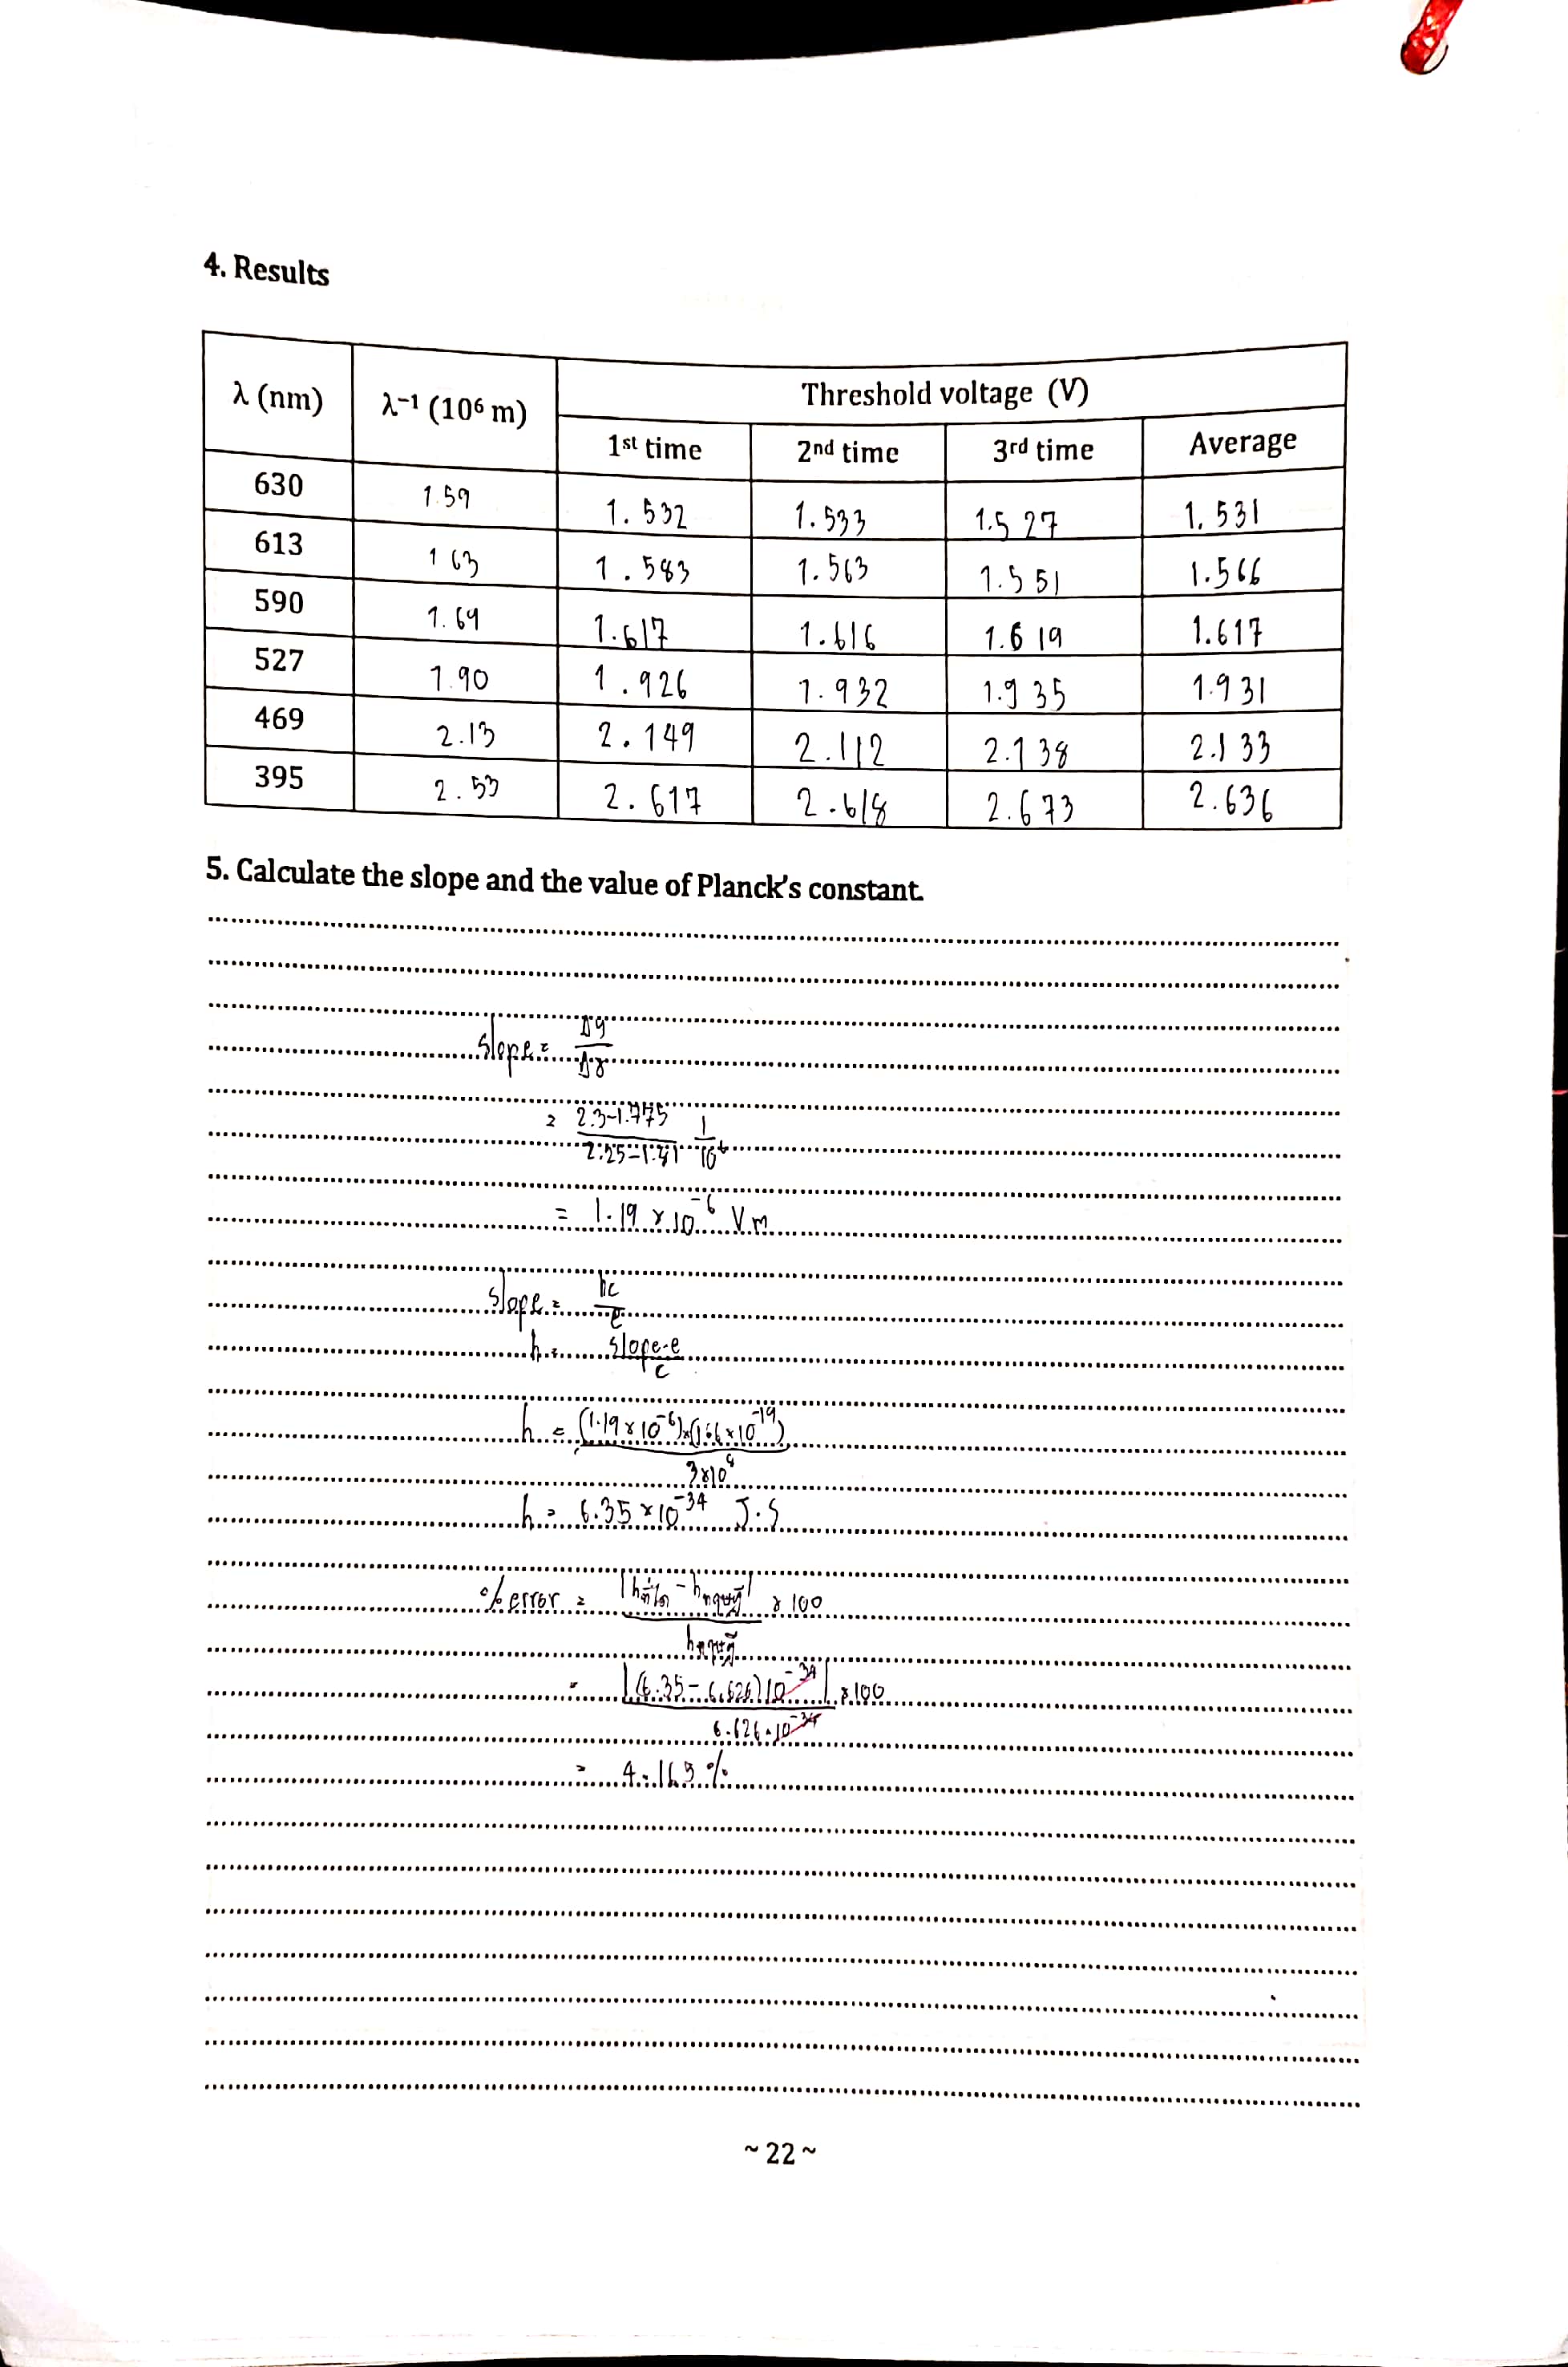 4. Results
λ (nm) λ⁻¹ (10⁶ m) Threshold voltage (V)
1st time 2nd time 3rd time Average
630 1.59 1.532 1.533 1.527 1.531
613 1 63 1.583 1.563 1.551 1.566
590 1.69 1.617 1.616 1.619 1.617
527 1.90 1.926 1.932 1.935 1.931
469 2.13 2.149 2.112 2.138 2.133
395 2.53 2.617 2.618 2.673 2.636
5. Calculate the slope and the value of Planck's constant.
Slope = Δy
Δx
= 2.3-1.775 1
2.25- 10⁶
= 1.19 x 10⁻⁶ V.m
Slope = hc
e
h = slope·e
c
h = (1.19 x 10⁻⁶)x( x 10⁻¹⁹)
3x10⁸
h = 6.35 x 10⁻³⁴ J.S
% error = |hที่ได้ - hทฤษฎี| x 100
hทฤษฎี
= |(6.35 - 6.626)10⁻³⁴| x 100
6.626 x 10⁻³⁴
= 4.165 %
~ 22 ~